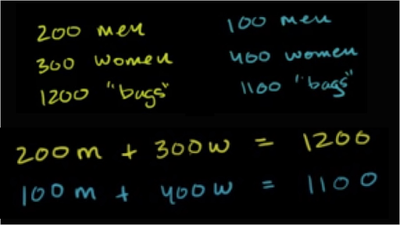 200 men
300 women
1200 "bags"
100 men
400 women
1100 "bags"
200m + 300w = 1200
100m + 400w = 1100